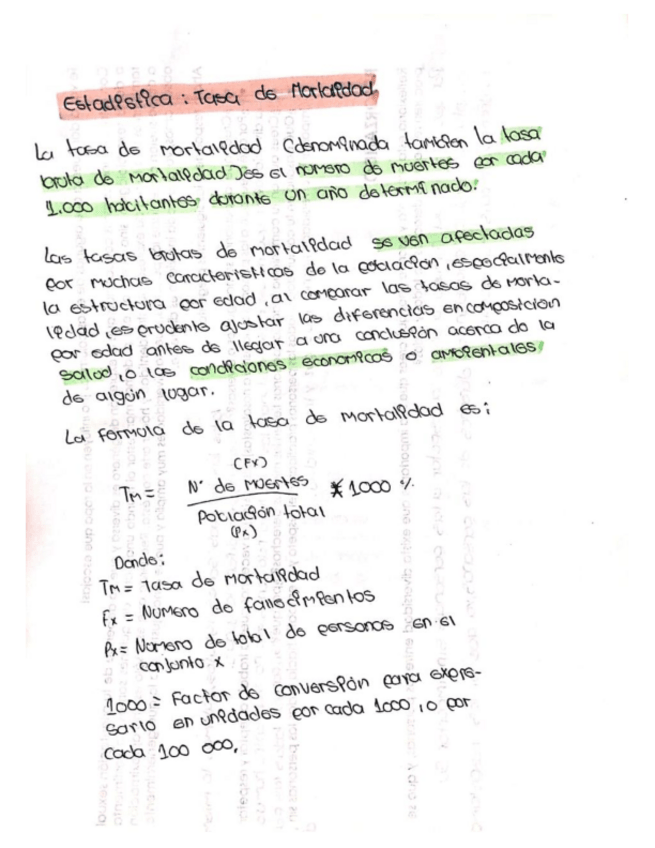 Estadística: Tasa de Mortalidad
La tasa de mortalidad (denominada también la tasa
bruta de mortalidad) es el número de muertes por cada
1.000 habitantes durante un año determinado.
Las tasas brutas de mortalidad se ven afectadas
por muchas características de la población, especialmente
la estructura por edad, al comparar las tasas de morta-
lidad, es prudente ajustar las diferencias en composición
por edad antes de llegar a una conclusión acerca de la
salud, o las condiciones económicas o ambientales
de algún lugar.
La fórmula de la tasa de mortalidad es:
(Fx)
TM = N° de muertes * 1000 %
Población total
(Px)
Donde:
TM = Tasa de mortalidad
Fx = Número de fallecimientos
Px = Número de total de personas en el
conjunto x
1000 = Factor de conversión para expre-
sarlo en unidades por cada 1000, o por
cada 100 000.